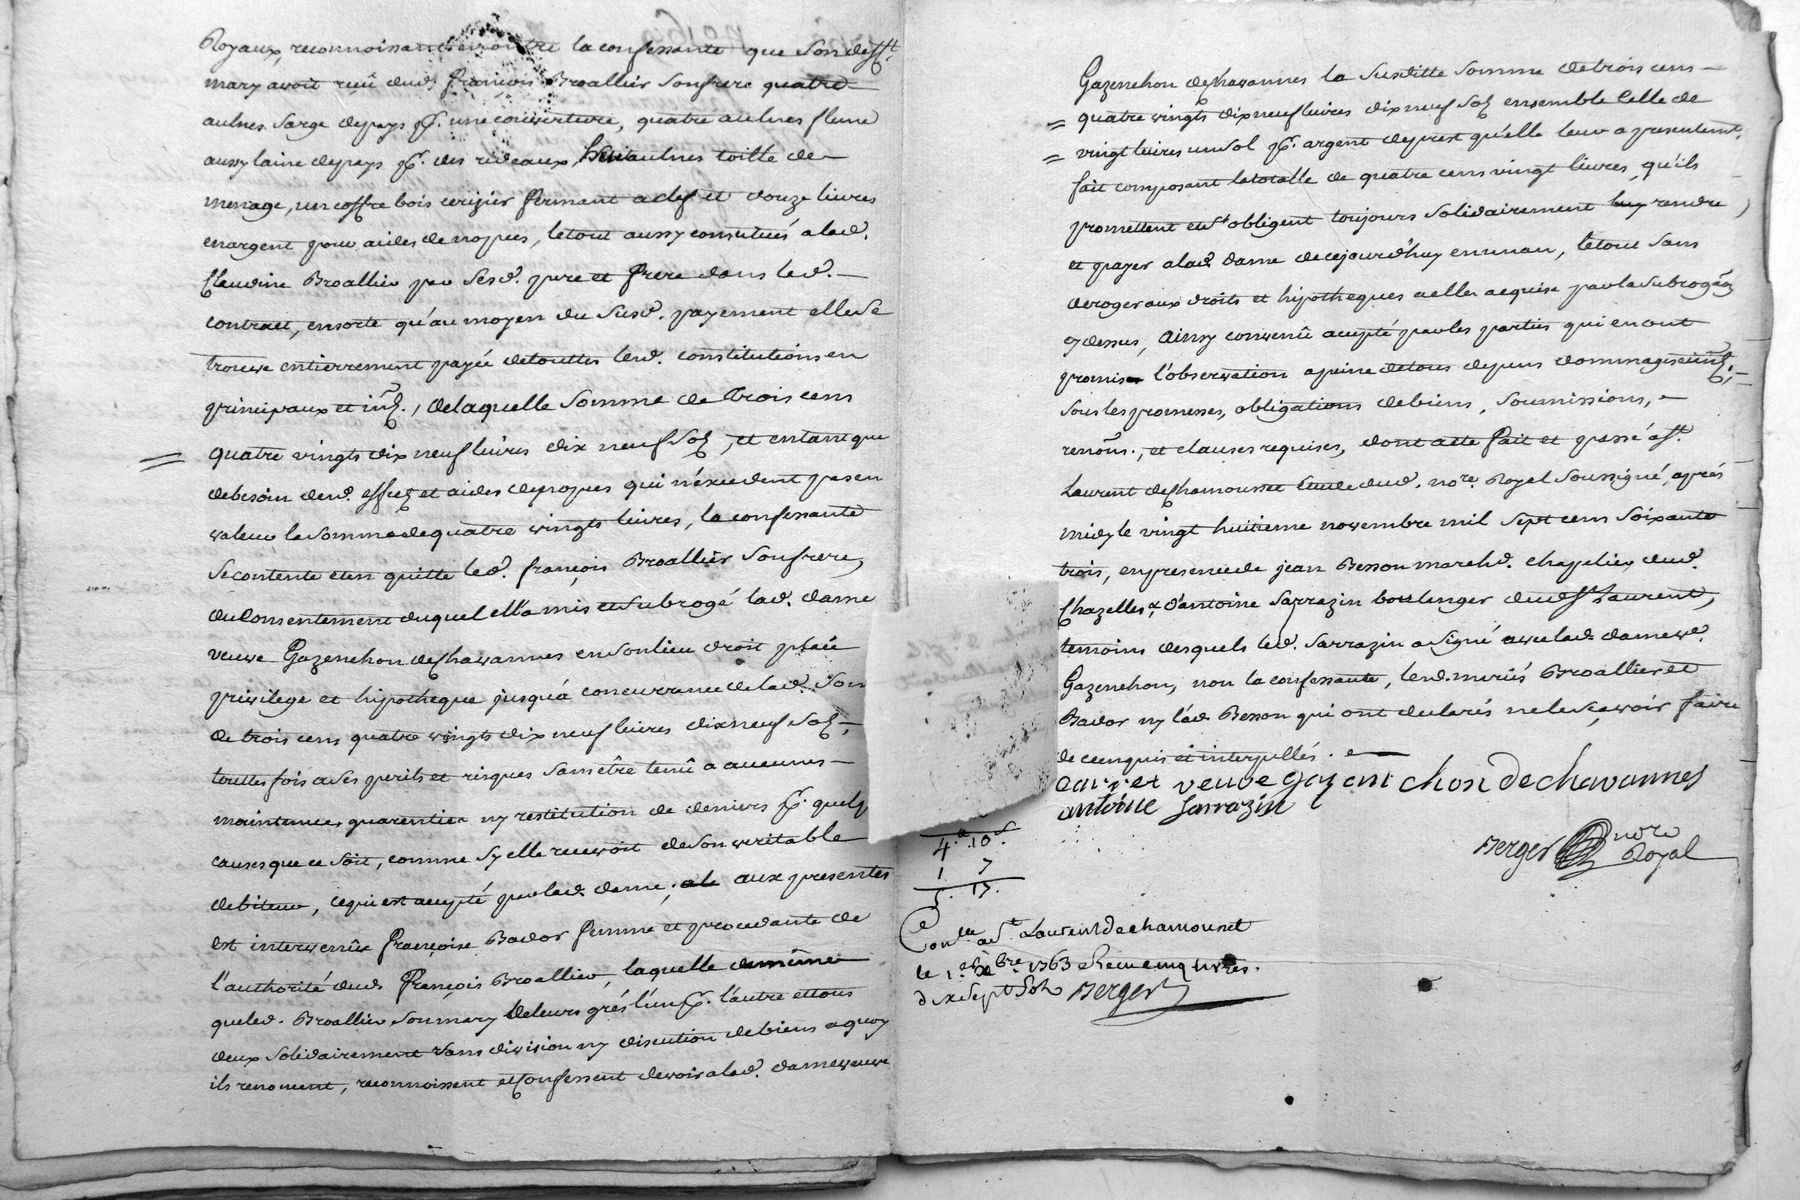 Royaux, reconnoissant encontre la confessante que son defft.
mary avoit reçû dud. françois Broallier son frere quatre
aulnes sarge de pays pr. une couverture, quatre aulnes flene
aussy laine de pays pr. des rideaux, huit aulnes toille de
menage, un coffre bois cerizier fermant a clef et douze livres
en argent pour aides de nopces, le tout aussy constitués a lad.
Claudine Broallier par sesd. pere et frere dans led.
contract, en sorte qu'au moyen du susd. payement elle se
trouve entierrement payée de touttes lesd. constitutions en
principaux et int. , de laquelle somme de trois cens
quatre vingts dix neuf livres dix neuf sols, et en tant que
de besoin desd. effets et aides de nopces qui n'éxcedent pas en
valeur la somme de quatre vingts livres, la confessante
se contente et en quitte led. françois Broallier son frere,
du Consentement duquel ell'a mis et subrogé lad. dame
veuve Gazenchon deChavannes en son lieu droit place
privilege et hipotheque jusqu'a concurrance de lad. som
de trois cens quatre vingts dix neuf livres dix neuf sols,
touttes fois a ses perils et risques sans être tenû a aucunes
maintenues guarentie ny restitution de deniers pr. quelq
causes que ce soit, comme sy elle recevoit de son veritable
debiteur, ce qui est accepté par lad. dame; aux presentes
est intervenûe françoise Bador femme et procedante de
l'authorité dud. françois Broallier, laquelle de même
que led. Broallier son mary de leurs grés l'un pr. l'autre et tous
deux solidairement sans division ny discution de biens a quoy
ils renoncent, reconnoissent et Confessent devoir a lad. dame veuve
Gazenchon deChavannes la susditte somme de trois cens
quatre vingts dix neuf livres dix neuf sols ensemble Celle de
vingt livres un sol pr. argent de prest qu'elle leur a presentemt.
fait composant la totalle de quatre cens vingt livres, qu'ils
promettent et s'obligent toujours solidairement luy rendre
et payer a lad. dame de ce jourd'huy en un an, le tout sans
deroger aux droits et hipotheques a elle acquise par la subrogaõn
cy dessus, Ainsy convenû accepté par les parties qui en ont
promis l'observation a peine de tous depens dommages intts.
sous les promesses, obligations de biens, soumissions,
renoõns., et clauses requises, dont acte fait et passé a St.
Laurent deChamousset Etude dud. nore. Royal soussigné, aprés
midy le vingt huitieme novembre mil sept cens soixante
trois, en presence de jean Besson marchd. chapelier dud.
Chazelles & d'antoine Sarrazin boulenger dud. St. Laurent,
temoins desquels led. Sarrazin a signé avec lad. dame ve.
Gazenchon, non la confessante, lesd. mariés Broallier et
Bador ny led. Besson qui ont declarés ne le sçavoir faire
de ce enquis et interpellés.
veuve gazanchon de chavannes
antoine Sarrazin
Berger nore
Royal
4 10
1 7
5. 17.
Conlle a St. Laurent de chamousset
le 1er. Xbre. 1763 Receu cinq livres
dix sept sols Berger